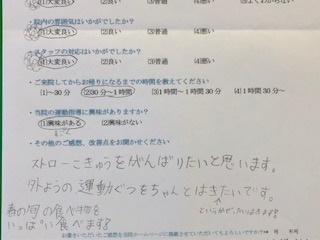 (1)大変良い (2)良い (3)普通 (4)悪い
・院内の雰囲気はいかがでしたか?
(1)大変良い (2)良い (3)普通 (4)悪い
・スタッフの対応はいかがでしたか?
(1)大変良い (2)良い (3)普通 (4)悪い
・ご来院してからお帰りになるまでの時間を教えてください
(1)~30分 (2)30分~1時間 (3)1時間~1時間30分 (4)1時間30分~
・当院の運動指導に興味がありますか?
(1)興味がある (2)興味がない
・その他のご感想、改善点をお聞かせください
ストローこきゅうをがんばりたいと思います。
外ようの運動ぐつをちゃんとはきたいです。
春の旬の食べ物を
いっぱい食べます!
お書きいただいたご感想を当院ホームページに掲載させていただいてもよろしいですか?